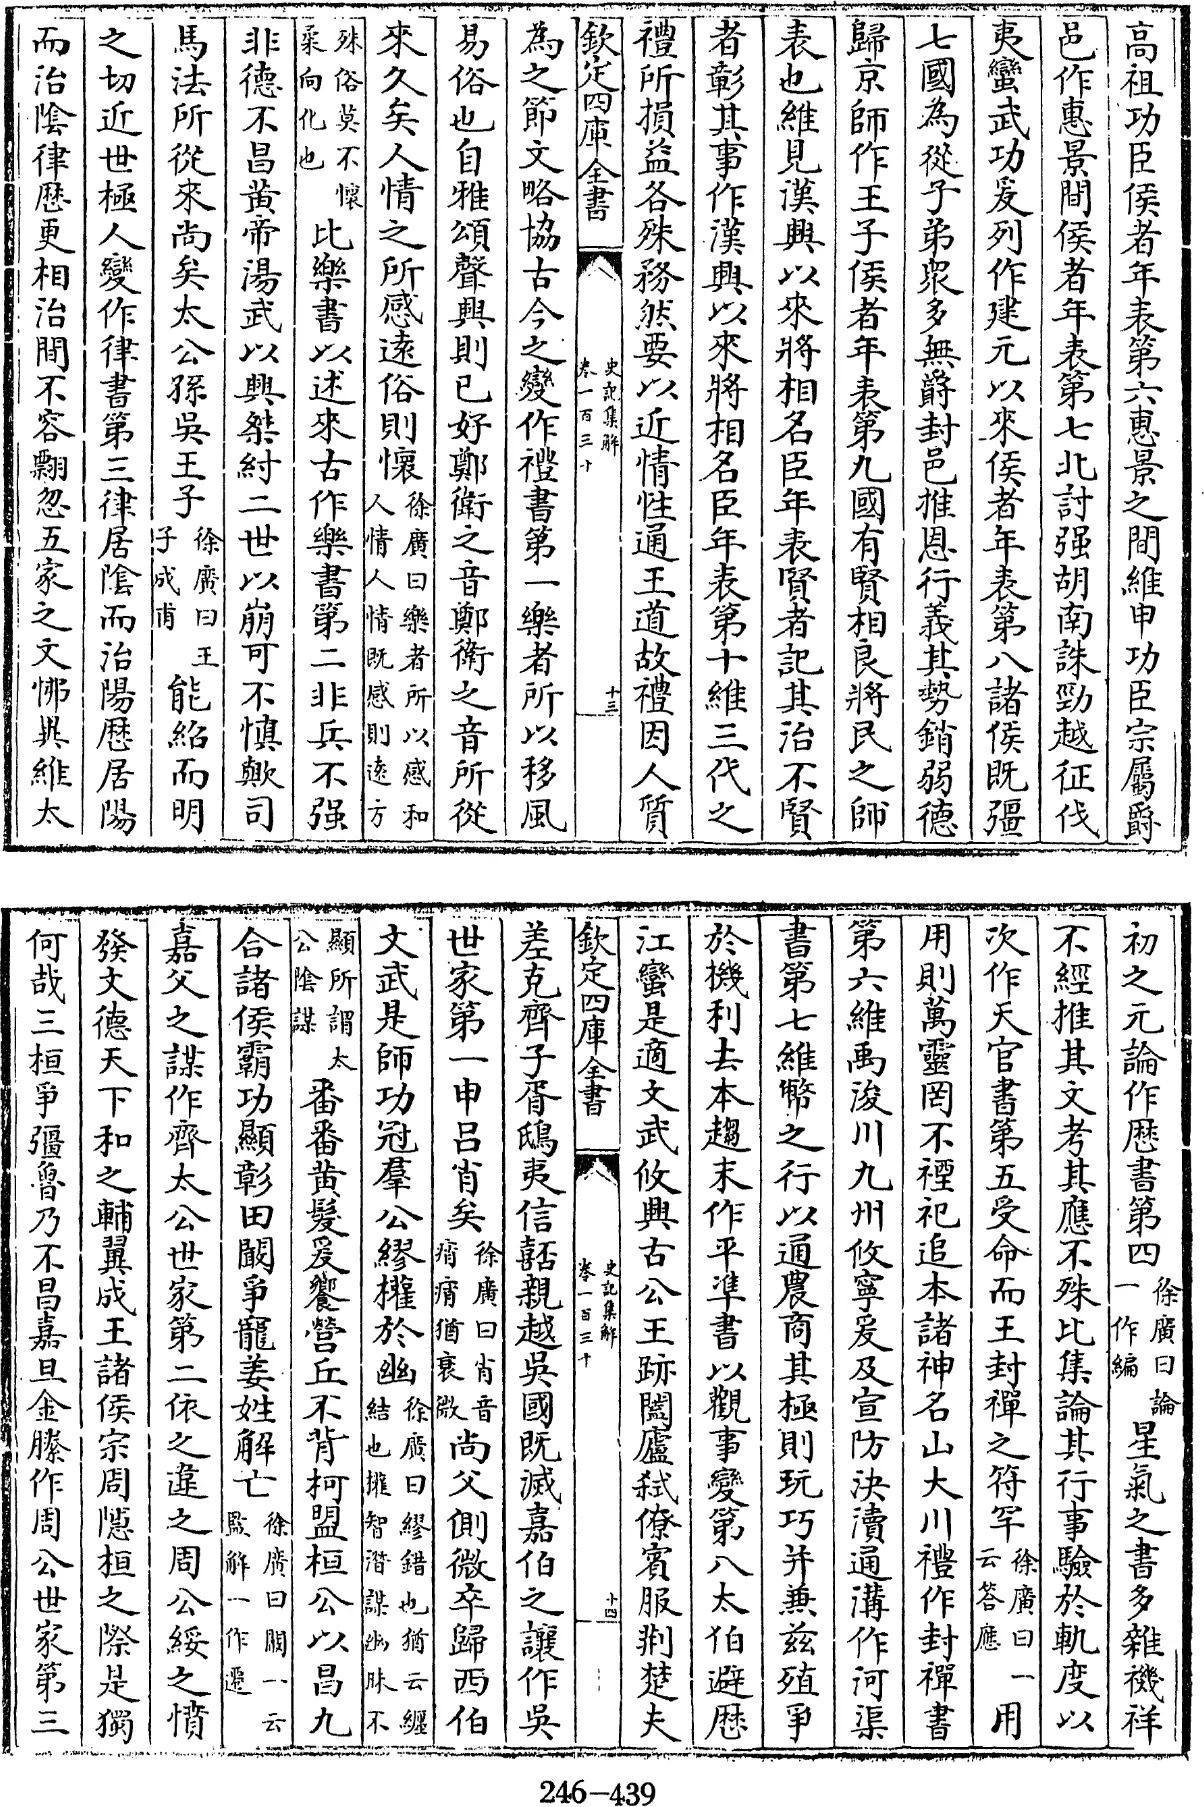 高祖功臣侯者年表第六惠景之間維申功臣宗屬爵
邑作惠景間侯者年表第七北討强胡南誅勁越征伐
夷蠻武功爰列作建元以來侯者年表第八諸侯既彊
七國為從子弟衆多無爵封邑推恩行義其勢銷弱德
歸京師作王子侯者年表第九國有賢相良將民之師
表也維見漢興以來將相名臣年表賢者記其治不賢
者彰其事作漢興以來將相名臣年表第十維三代之
禮所損益各殊務然要以近情性通王道故禮因人質
欽定四庫全書 史記集解 卷一百三十 十三
為之節文略協古今之變作禮書第一樂者所以移風
易俗也自雅頌聲興則已好鄭衛之音鄭衛之音所從
來久矣人情之所感遠俗則懷徐廣曰樂者所以感和人情人情既感則遠方
殊俗莫不懷柔向化也比樂書以述來古作樂書第二非兵不强
非德不昌黄帝湯武以興桀紂二世以崩可不慎歟司
馬法所從來尚矣太公孫吳王子徐廣曰王子成甫能紹而明
之切近世極人變作律書第三律居隂而治陽歴居陽
而治隂律歴更相治間不容翲忽五家之文怫異維太
初之元論作歴書第四徐廣曰論一作編星氣之書多雜禨祥
不經推其文考其應不殊比集論其行事驗於軌度以
次作天官書第五受命而王封禪之符罕徐廣曰一云答應用
用則萬靈罔不禋祀追本諸神名山大川禮作封禪書
第六維禹浚川九州攸寧爰及宣防決瀆通溝作河渠
書第七維幣之行以通農商其極則玩巧并兼兹殖爭
於機利去本趨末作平凖書以觀事變第八太伯避歴
江蠻是適文武攸興古公王跡闔廬弑僚賓服荆楚夫
欽定四庫全書 史記集解 卷一百三十 十四
差克齊子胥鴟夷信嚭親越吳國既滅嘉伯之讓作吳
世家第一申吕肖矣徐廣曰肖音痟痟猶衰微尚父側微卒歸西伯
文武是師功冠羣公繆權於幽徐廣曰繆錯也猶云纒結也權智潛謀幽昧不
顯所謂太公隂謀番番黄髮爰饗營丘不背柯盟桓公以昌九
合諸侯霸功顯彰田闞爭寵姜姓解亡徐廣曰闞一云監解一作遷
嘉父之謀作齊太公世家第二依之違之周公綏之憤
發文德天下和之輔翼成王諸侯宗周隱桓之際是獨
何哉三桓爭彊魯乃不昌嘉旦金縢作周公世家第三
246-439